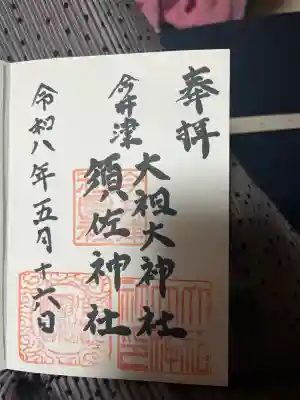 奉拝
大祖大神社
今井津
須佐神社
令和八年五月十六日